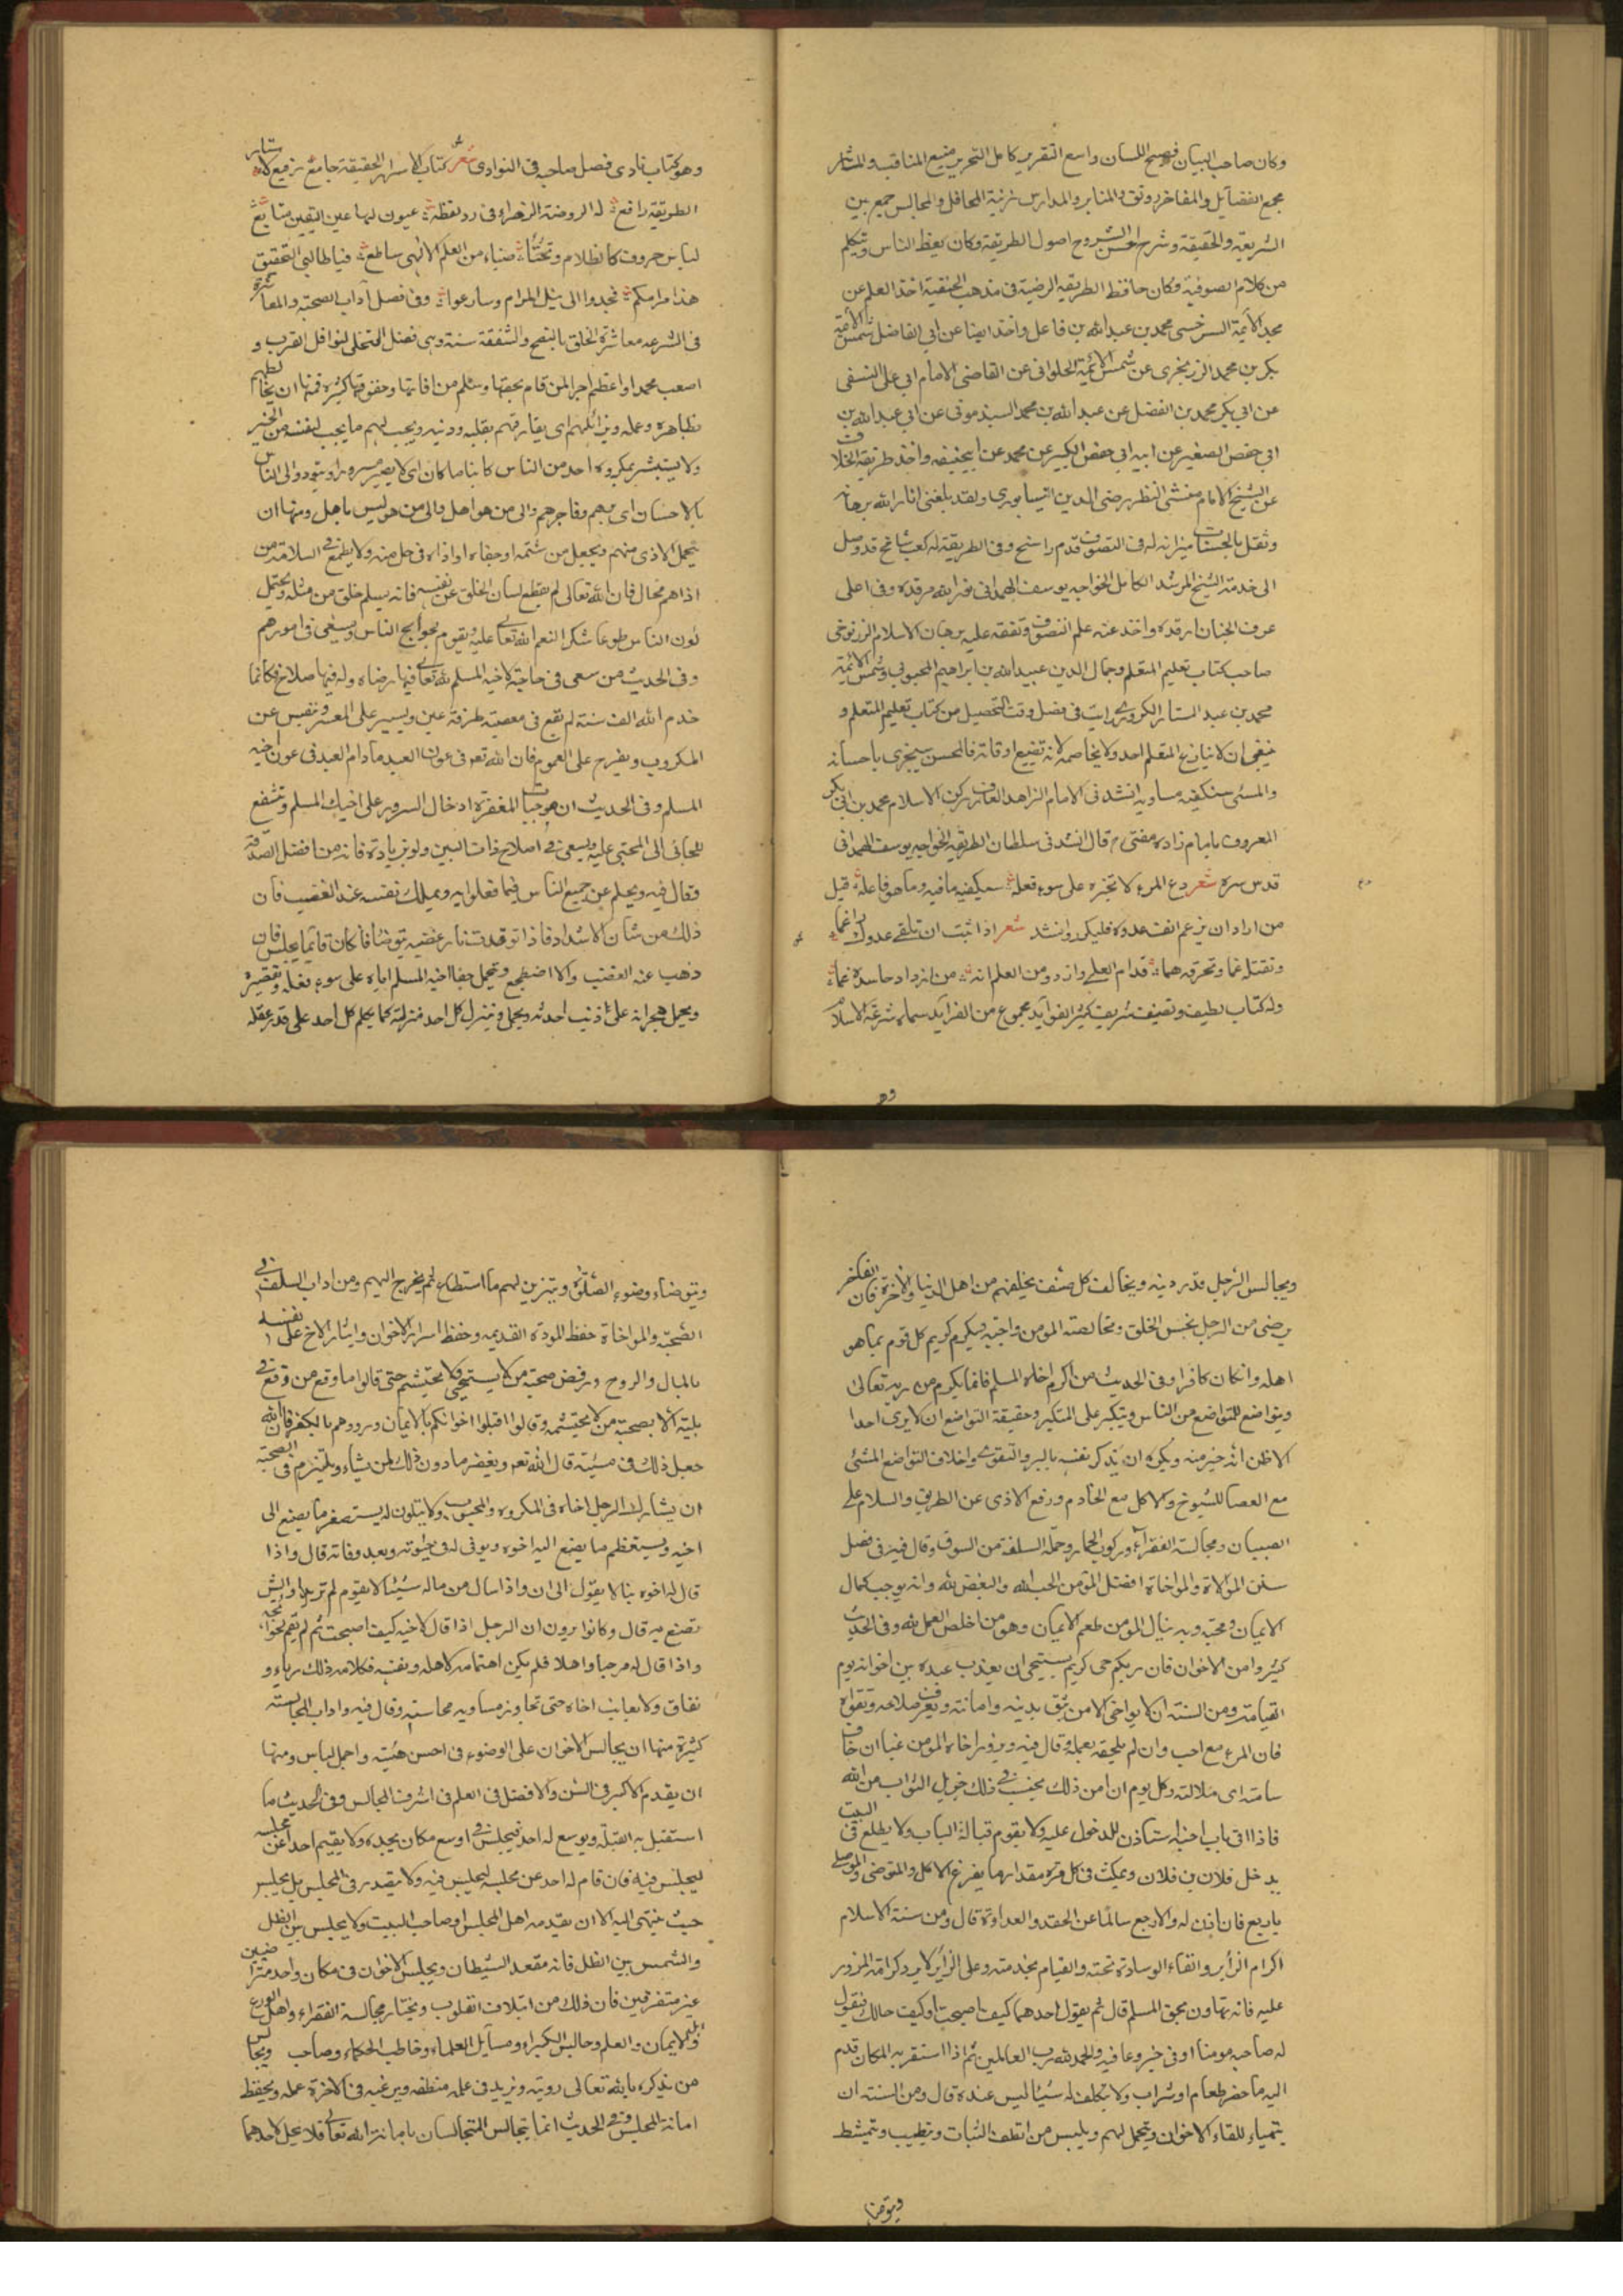 وكان صاحب البيان فصيح اللسان واسع التقرير كامل التحرير منبع المناقب والمآثر
مجمع الفضايل والمفاخر رونق المنابر والمدارس زينة المحافل والمجالس جمع بين
الشريعة والحقيقة وشرح احسن الشروح اصول الطريقة وكان يعظ الناس ويتكلم
من كلام الصوفية وكان حافظ الطريقة الرضية في مذهب الحنفية اخذ العلم عن
مجد الائمة السرخسي محمد بن عبد الله بن فاعل واخذ ايضا عن ابي الفاضل شمس الائمة
بكر بن محمد الزرنجرى عن شمس الائمة الحلوانى عن القاضى الامام ابي على النسفى
عن ابي بكر محمد بن الفضل عن عبد الله بن محمد السبذمونى عن ابي عبد الله بن
ابي حفص الصغير عن ابيه ابي حفص الكبير عن محمد عن ابيحنيفه واخذ طريقة الخلاف
عن الشيخ الامام منشى النظر رضى الدين النيسابورى ولقد بلغنى انار الله برهانه
وثقل بالحسنات ميزانه له في التصوف قدم راسخ وفي الطريقة له كعب شامخ قد وصل
الى خدمة الشيخ المرشد الكامل الخواجه يوسف الهمدانى نور الله مرقده وفي اعلى
غرف الجنان ارقده واخذ عنه علم التصوف وتفقه عليه برهان الاسلام الزرنوجى
صاحب كتاب تعليم المتعلم وجمال الدين عبيد الله بن ابراهيم المحبوبي وشمس الائمة
محمد بن عبد الستار الكردرى رايت في فصل وقت التحصيل من كتاب تعليم المتعلم و
ينبغى ان لا ينازع المتعلم احد ولا يخاصمه لانه تضييع اوقاته فالمحسن سيجزى باحسانه
والمسئ ستكفيه مساويه انشدنى الامام الزاهد العارف ركن الاسلام محمد بن ابي بكر
المعروف بامام زاده مفتى قال انشدنى سلطان الطريقة الخواجه يوسف الهمدانى
قدس سره شعر دع المرء لا تجزه على سوء فعله سيكفيه ما فيه وما هو فاعله قيل
من اراد ان يرغم انف عدوه فليكرر وانشد شعر اذا شئت ان تلقى عدوك راغما
وتقتله غما وتحرقه هما قدام العلى وازدد من العلم انه من ازداد حاسده غما
وله كتاب لطيف وتصنيف شريف كثير الفوايد مجموع من الفرايد سماه شرعة الاسلام
وهو
وهو كتاب نادى فصل صاحبه في النوادى شعر كتاب لاسرار الحقيقة جامع رفيع لاستار
الطريقة رافع له الروضة الزهراء في رد لفظه عيون لها عين اليقين منابع
لباس حروف كالظلام وتحتها ضياء من العلم الالهى ساطع فيا طالبى التحقيق
هذا مرامكم فجدوا الى نيل المرام وسارعوا وفي فصل آداب الصحبة والمعاشرة
في الشرعه معاشرة الخلق بالنصح والشفقة سنة وهى فضل التخلى لنوافل القرب و
اصعب محمدا واعظم اجرا لمن قام بحقها وسلم من افاتها وحقوقها كثيرة فمنها ان يخالطهم
بظاهره وعمله ويزائلهم اى يفارقهم بقلبه ودينه ويحب لهم ما يحب لنفسه من الخير
ولا يستبشر بمكروه احد من الناس كائنا ما كان اى لا يصير مسرورا ويتودد الى الناس
بالاحسان اى برهم وفاجرهم والى من هو اهل والى من هو ليس باهل ومنها ان
يتحمل الاذى منهم ويجعل من شتمه او جفاه او اذاه في حل منه ولا يطمع في السلامة من
اذاهم فحال فان الله تعالى لم يقطع لسان الخلق عن نفسه فانه يسلم خلق من مثله ويتحمل
مؤن الناس طوعا شكرا لنعم الله تعالى عليه ويقوم بحوايج الناس ويسعى في امورهم
وفي الحديث من سعى في حاجة لاخيه المسلم لله تعالى فيها رضاه وله فيها صلاح فكانما
خدم الله الف سنة لم يقع في معصيته طرفة عين وييسر على المعسر وتنفيس عن
المكروب ويفرح على العموم فان الله تعه في عون العبد ما دام العبد في عون اخيه
المسلم وفي الحديث ان موجبات المغفرة ادخال السرور على اخيك المسلم وتشفع
للجانى الى المجنى عليه ويسعى في اصلاح ذات البين ولو بزيادة فانه من افضل الصدقة
وقال فيه ويحلم عن جميع الناس فيما فعلوا به ويملك نفسه عند الغضب فان
ذلك من شأن الاشداد فاذا توقدت نار غضبه يتوضأ فان كان قائما يجلس فان
ذهب عنه الغضب والا اضطجع ويحمل جفا اخيه المسلم اياه على سوء فعله وتقصيره
ويحمل هجرانه على ذنب احدثه ويجمل وينزل كل احد منزلته كما يحلم كل احد على قدر عقله
ويجالس الرجل قدر دينه ويخالف كل صنف بخلقهم من اهل الدنيا والاخرة فان الفاجر
يرضى من الرجل بحسن الخلق ومخالصته المؤمن واجبه فيكرم كريم كل قوم بما هو
اهله وان كان كافرا وفي الحديث من اكرم اخاه المسلم فانما يكرم من ربه تعالى
ويتواضع للمتواضع من الناس ويتكبر على المتكبر وحقيقة التواضع ان لا يرى احدا
الا ظن انه خير منه ويكره ان يذكر نفسه بالبر والتقوى واخلاف التواضع المشى
مع العصا للشيوخ والاكل مع الخادم ورفع الاذى عن الطريق والسلام على
الصبيان ومجالسة الفقراء وركوب الحمار وحمل السلعة من السوق وقال فيه في فصل
سنن الموالاة والمواخاة افضل المؤمن الحب لله والبغض لله وانه يوجب كمال
الايمان ومحبته وبه ينال المؤمن طعم الايمان وهو من اخلص العمل لله وفي الحديث
كثيروا من الاخوان فان ربكم حى كريم يستحيى ان يعذب عبده بين اخوانه يوم
القيامة ومن السنة ان لا يواخى الا من يثق بدينه وامانته ويعرف صلاحه وتقواه
فان المرء مع من احب وان لم يلحقه بعمله وقال فيه ويزور اخاه المؤمن غبا ان خاف
سآمته اى ملالته وكل يوم ان امن ذلك يحتسب في ذلك جزيل الثواب من الله
فاذا اتى باب اخيه استاذن للدخول عليه ولا يقوم قبالة الباب ولا يطلع في البيت
يدخل فلان بن فلان ويمكث في كل مرة مقدار ما يفرغ الاكل والمتوضى والمصلى
باربع فان اذن له والا رجع سالما عن الحقد والعداوة قال ومن سنة الاسلام
اكرام الزائر والقاء الوسادة تحته والقيام بخدمته وعلى الزائر لا يرد كرامة المزور
عليه فانه تهاون بحق المسلم قال ثم يقول احدهما كيف اصبحت او كيف حالك فيقول
له صاحبه مومنا او في خير وعافيه والحمد لله رب العالمين ثم اذا استقر به المكان قدم
اليه ما حضر طعام او شراب ولا يتكلف له شيئا ليس عنده قال ومن السنة ان
يتهياء للقاء الاخوان ويتجمل لهم ويلبس من انظف الثياب ويتطيب ويتمشط
ويتوضا
ويتوضاء وضوء الصلوة ويتزين لهم ما استطاع ثم يخرج اليهم ومن اداب السلف في
الصحبة والمواخاة حفظ المودة القديمه وحفظ اسرار الاخوان وايثار الاخ على نفسه
بالمال والروح ورفض صحبة من لا يستحيى ولا يحتشم حتى قالوا ما وقع من وقع في
بلية الا بصحبة من لا يحتشمه وقالوا اقبلوا اخوانكم بالايمان وردوهم بالكفر فان الله
جعل ذلك في مشيته قال الله تعه ويغفر ما دون ذلك لمن يشاء ويلتزم في الصحبة
ان يشارك الرجل اخاه في المكروه والمحبوب ولا يتلون له يستصغر ما يصنع الى
اخيه ويستعظم ما يصنع اليه اخوه ويوفى له في حيوته وبعد وفاته قال واذا
قال له اخوه بنا لا يقول الى اين واذا سال من ماله شيئا لا يقوم لم تريد او ايش
تصنع به قال وكانوا يرون ان الرجل اذا قال لاخيه كيف اصبحت ثم لم يقم بحوائجه
واذا قال له مرحبا واهلا فلم يكن اهتمامه كاهله ونفسه فكلامه ذلك رياء و
نفاق ولا يعايب اخاه حتى تجاوز مساويه محاسنه وقال فيه واداب المجالسته
كثيرة منها ان يجالس الاخوان على الوضوء في احسن هيئته واجمل لباس ومنها
ان يقدم الاكبر في السن والافضل في العلم في اشرف المجالس وفي الحديث ما
استقبل به القبلة ويوسع له احد فيجلس في اوسع مكان يجده ولا يقيم احدا عن مجلسه
ليجلس فيه فان قام له احد عن مجلسه ليجلس فيه ولا يتصدر في المجلس بل يجلس
حيث ينتهى اليه الا ان يقدمه اهل المجلس او صاحب البيت ولا يجلس بين الظل
والشمس بين الظل فانه مقعد الشيطان ويجلس الاخوان في مكان واحد متراضين
غير متفرقين فان ذلك من ايتلاف القلوب ويختار مجالسة الفقراء واهل الورع
والايمان والعلم وجالس الكبراء ومسايل العلماء وخاطب الحكماء وصاحب ويجالس
من يذكره بالله تعالى رويته ويزيد في علمه منطقه ويرغبه في الاخرة عمله ويحفظ
امانة المجلس وفي الحديث انما يتجالس المتجالسان بامانة الله تعالى فلا يحل لاحدهما